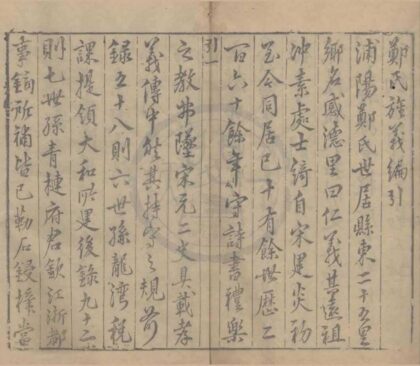 鄭氏旌義編引
浦陽鄭氏世居縣東二十五里
鄉名感德里曰仁義其遠祖
沖素處士綺自宋建炎初
至今同居已十有餘世歷二
百六十餘年守詩書禮樂
之教弗墜宋元二史具載孝
引一
義傳中然其持守之規前
錄五十八則六世孫龍灣稅
課提領大和所建後錄九十二
則七世孫青槤府君欽江浙都
事鉉所補皆已勒石鋟梓當